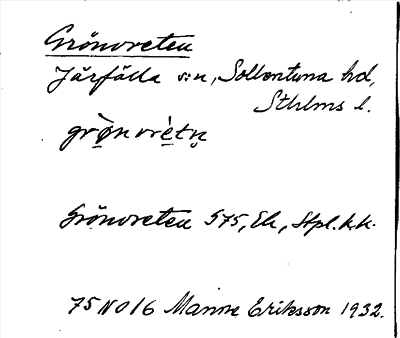 Grönvreten
Järfälla s:n, Sollentuna hd,
Sthlms l.
grö̀nvrètn̥
Grönvreten 575, Ek, Stpl. k.k.
75 NO 16 Manne Eriksson 1932.